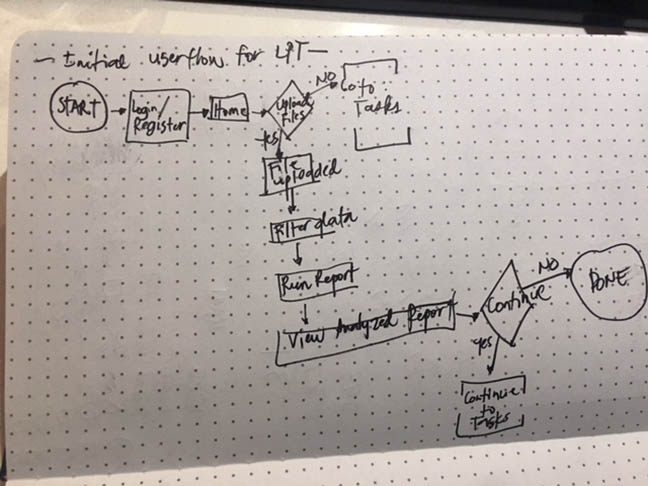 — Initial userflow for LPT —
START
Login/
Register
Home
Upload
Files
NO
Go to
Tasks
Yes
File
uploaded
Filter data
Run Report
View Analyzed Report
Continue
NO
DONE
Yes
Continue
to
Tasks